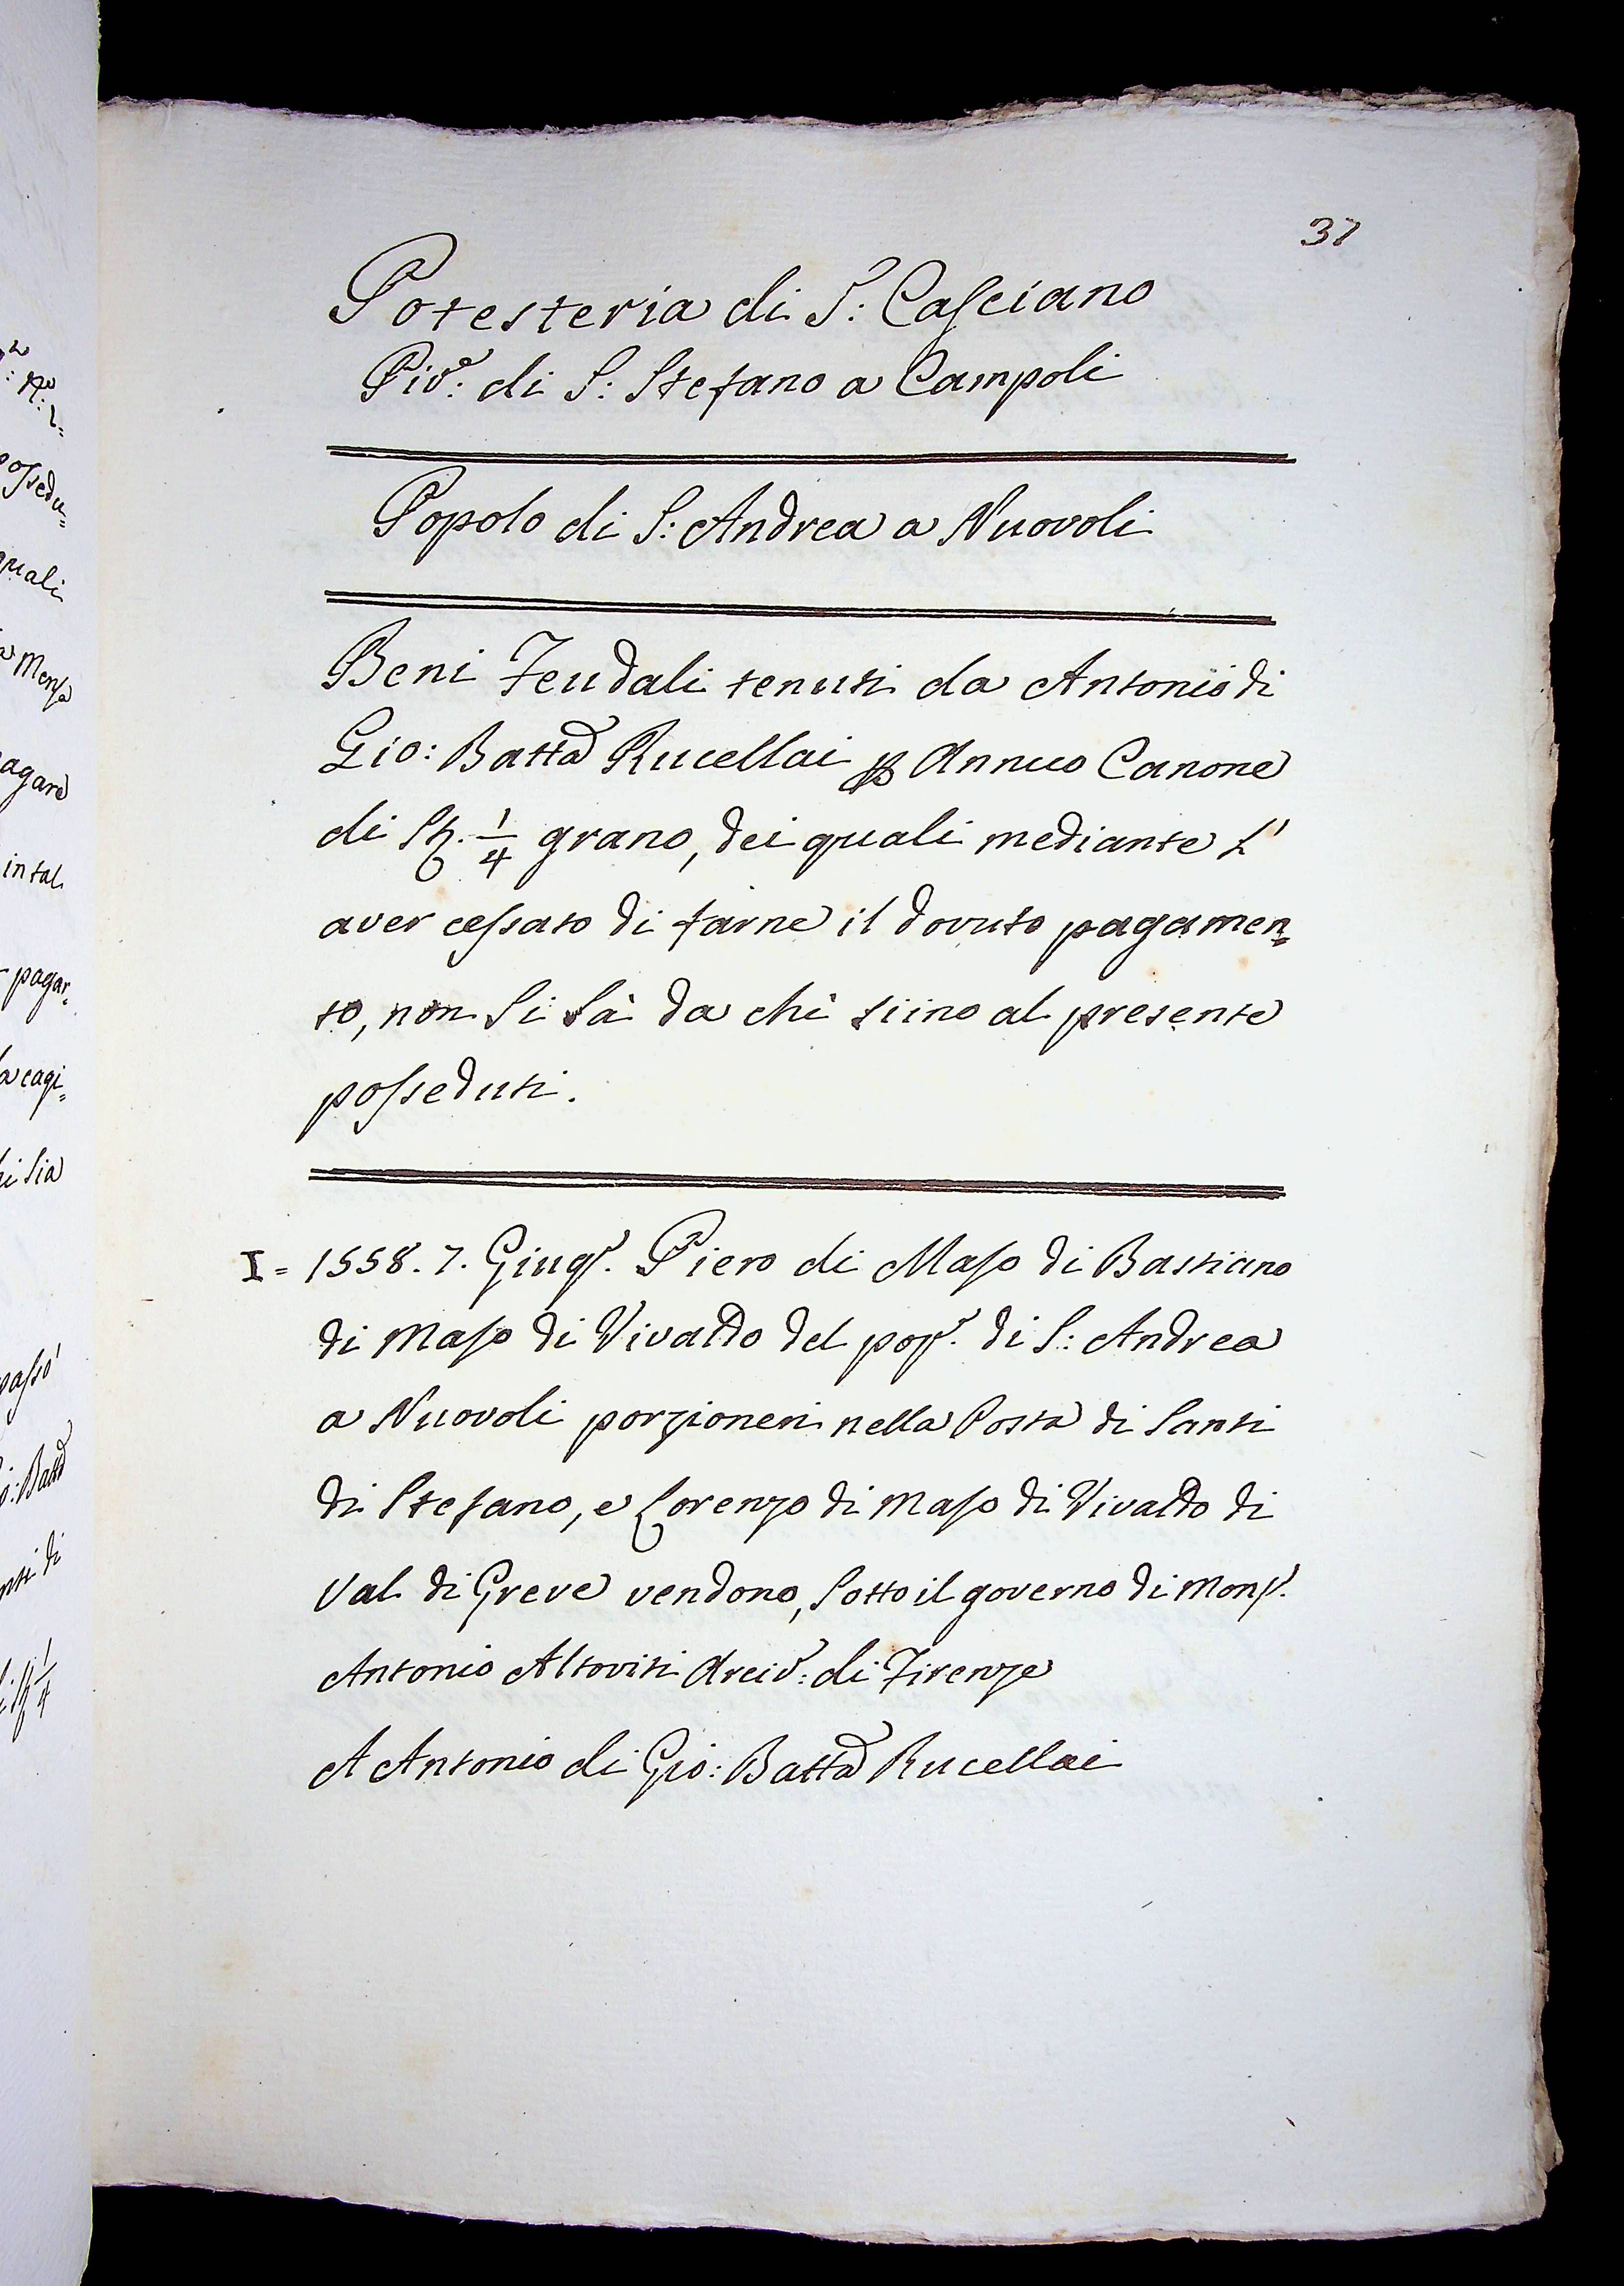 37
Potesteria di S: Casciano
Piv.e: di S: Stefano a Campoli
Popolo di S: Andrea a Nuovoli
Beni Feudali tenuti da Antonio di
Gio: Batta Rucellai p Annuo Canone
di St. 1/4 grano, dei quali mediante l'
aver cessato di farne il dovuto pagamen=
to, non si sà da chì siino al presente
posseduti.
I = 1558. 7. Giug.o Piero di Maso di Bastiano
di Maso di Vivaldo del pop.o di S: Andrea
a Nuovoli porzioneri nella Posta di Santi
di Stefano, e Lorenzo di Maso di Vivaldo di
Val di Greve vendono, sotto il governo di Mons.r
Antonio Altoviti Arciv.o: di Firenze
A Antonio di Gio: Batta Rucellai